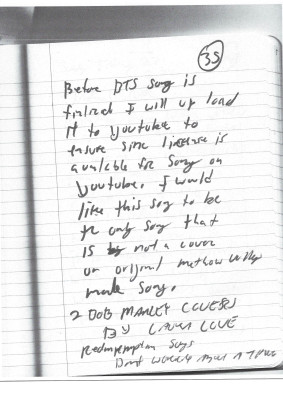 35
Before BTS song is
finired I will up load
it to youtube to
ensure sinc license is
available for song on
youtube. I would
like this sog to be
the only song that
IS not a cover
or original methow valley
made song.
2 BOB MARLEY COVERS
BY LAURA LOVE
Redempemption Songs
Dont worry